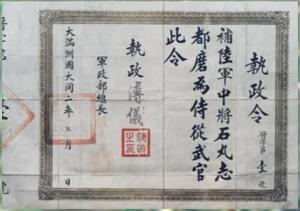 執政令
補陸軍中將石丸志
都磨為侍從武官
此令
執政 溥儀
軍政部總長
大滿洲國大同二年 月 日